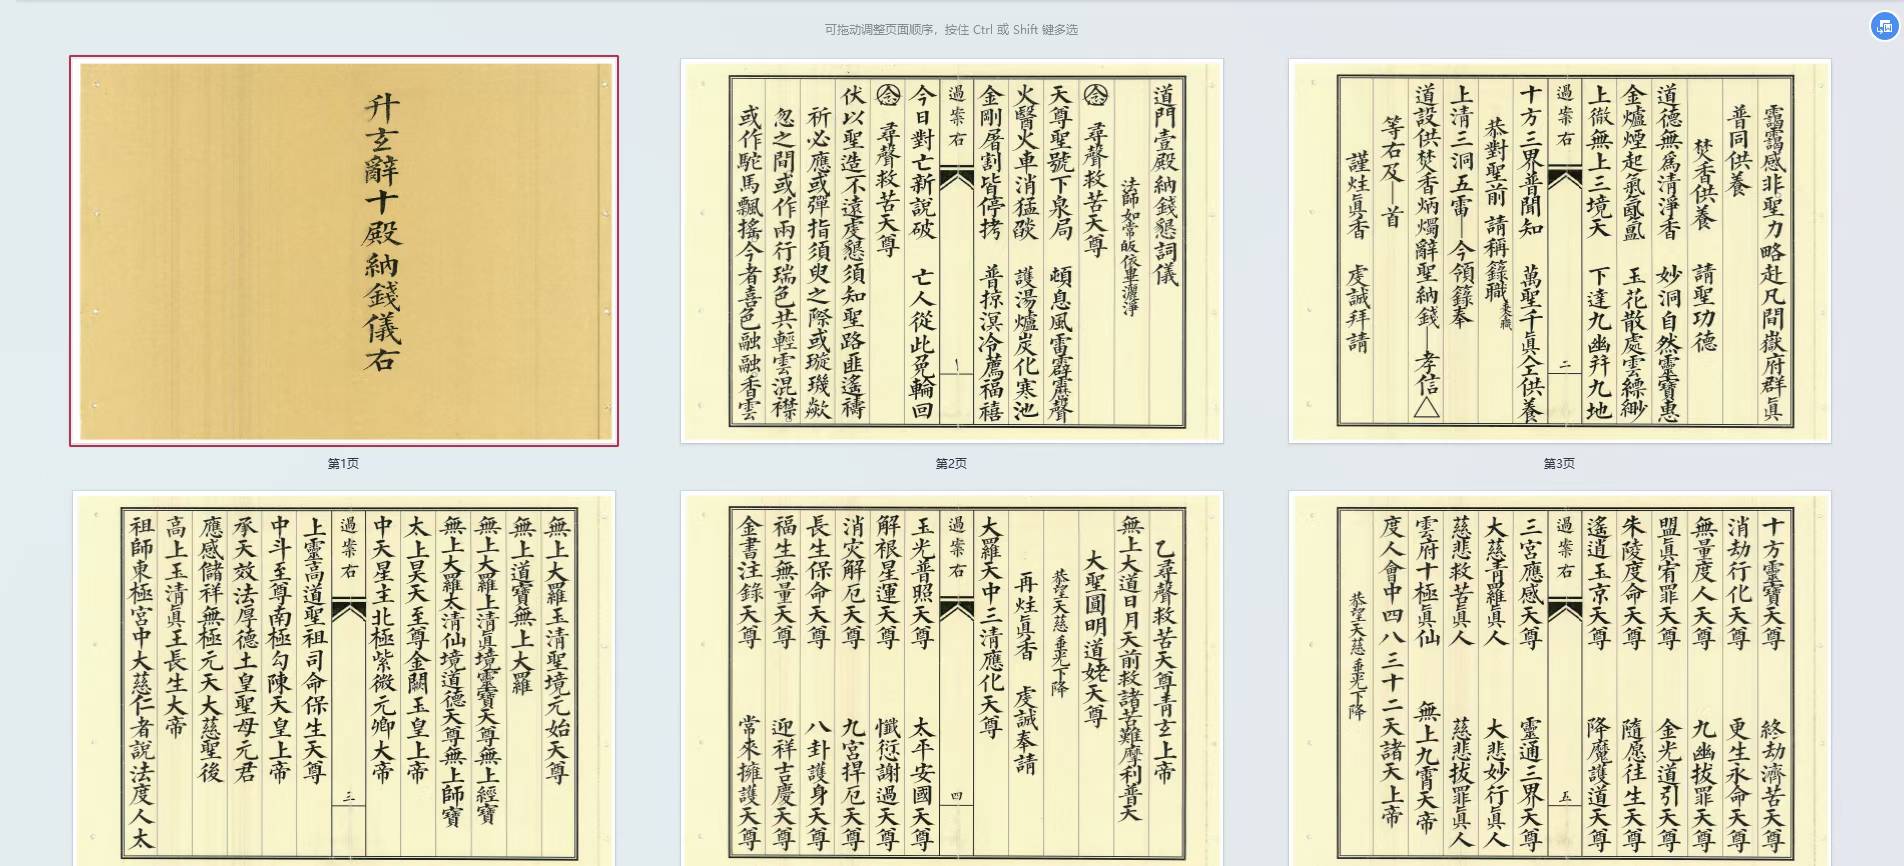 可拖动调整页面顺序，按住 Ctrl 或 Shift 键多选
升玄辭十殿納錢儀右
第1页
道門壹殿納錢懇詞儀
法師如常皈依畢灑淨
尋聲救苦天尊
天尊聖號下泉局 頓息風雷霹靂聲
火醫火車消猛燄 護湯爐炭化寒池
金剛屠割皆停拷 普掠溟泠薦福禧
過案右
一
今日對亡新說破 亡人從此免輪回
尋聲救苦天尊
伏以聖造不遠虔懇須知聖路匪遙禱
祈必應或彈指須臾之際或璇璣歘
忽之間或作兩行瑞色共輕雲混襟
或作駝馬飄搖今者喜色融融香雲
第2页
靄靄感非聖力略赴凡間嶽府群眞
普同供養
焚香供養 請聖功德
道德無為清淨香 妙洞自然靈寶惠
金爐煙起氣氤氳 玉花散處雲縹緲
上徹無上三境天 下達九幽并九地
過案右
二
十方三界普聞知 萬聖千眞仝供養
恭對聖前 請稱籙職
上清三洞五雷 今領籙奉
道設供焚香炳燭辭聖納錢 孝信△
等右及 首
謹炷眞香 虔誠拜請
第3页
無上大羅玉清聖境元始天尊
無上道寶無上大羅
無上大羅上清眞境靈寶天尊無上經寶
無上大羅太清仙境道德天尊無上師寶
太上昊天至尊金闕玉皇上帝
中天星主北極紫微元卿大帝
過案右
三
上靈高道聖祖司命保生天尊
中斗至尊南極勾陳天皇上帝
承天效法厚德土皇聖母元君
應感儲祥無極元天大慈聖後
高上玉清眞王長生大帝
祖師東極宮中大慈仁者說法度人太
乙尋聲救苦天尊青玄上帝
無上大道日月天前救諸苦難摩利普天
大聖圓明道姥天尊
恭望天慈垂光下降
再炷眞香 虔誠奉請
大羅天中三清應化天尊
過案右
四
玉光普照天尊 太平安國天尊
解禳星運天尊 懺愆謝過天尊
消灾解厄天尊 九宮捍厄天尊
長生保命天尊 八卦護身天尊
福生無量天尊 迎祥吉慶天尊
金書注錄天尊 常來擁護天尊
十方靈寶天尊 終劫濟苦天尊
消劫行化天尊 更生永命天尊
無量度人天尊 九幽拔罪天尊
盟眞宥罪天尊 金光道引天尊
朱陵度命天尊 隨愿往生天尊
遙逍玉京天尊 降魔護道天尊
過案右
五
三宮應感天尊 靈通三界天尊
大慈青羅眞人 大悲妙行眞人
慈悲救苦眞人 慈悲拔罪眞人
雲府十極眞仙 無上九霄天帝
度人會中四八三十二天諸天上帝
恭望天慈垂光下降